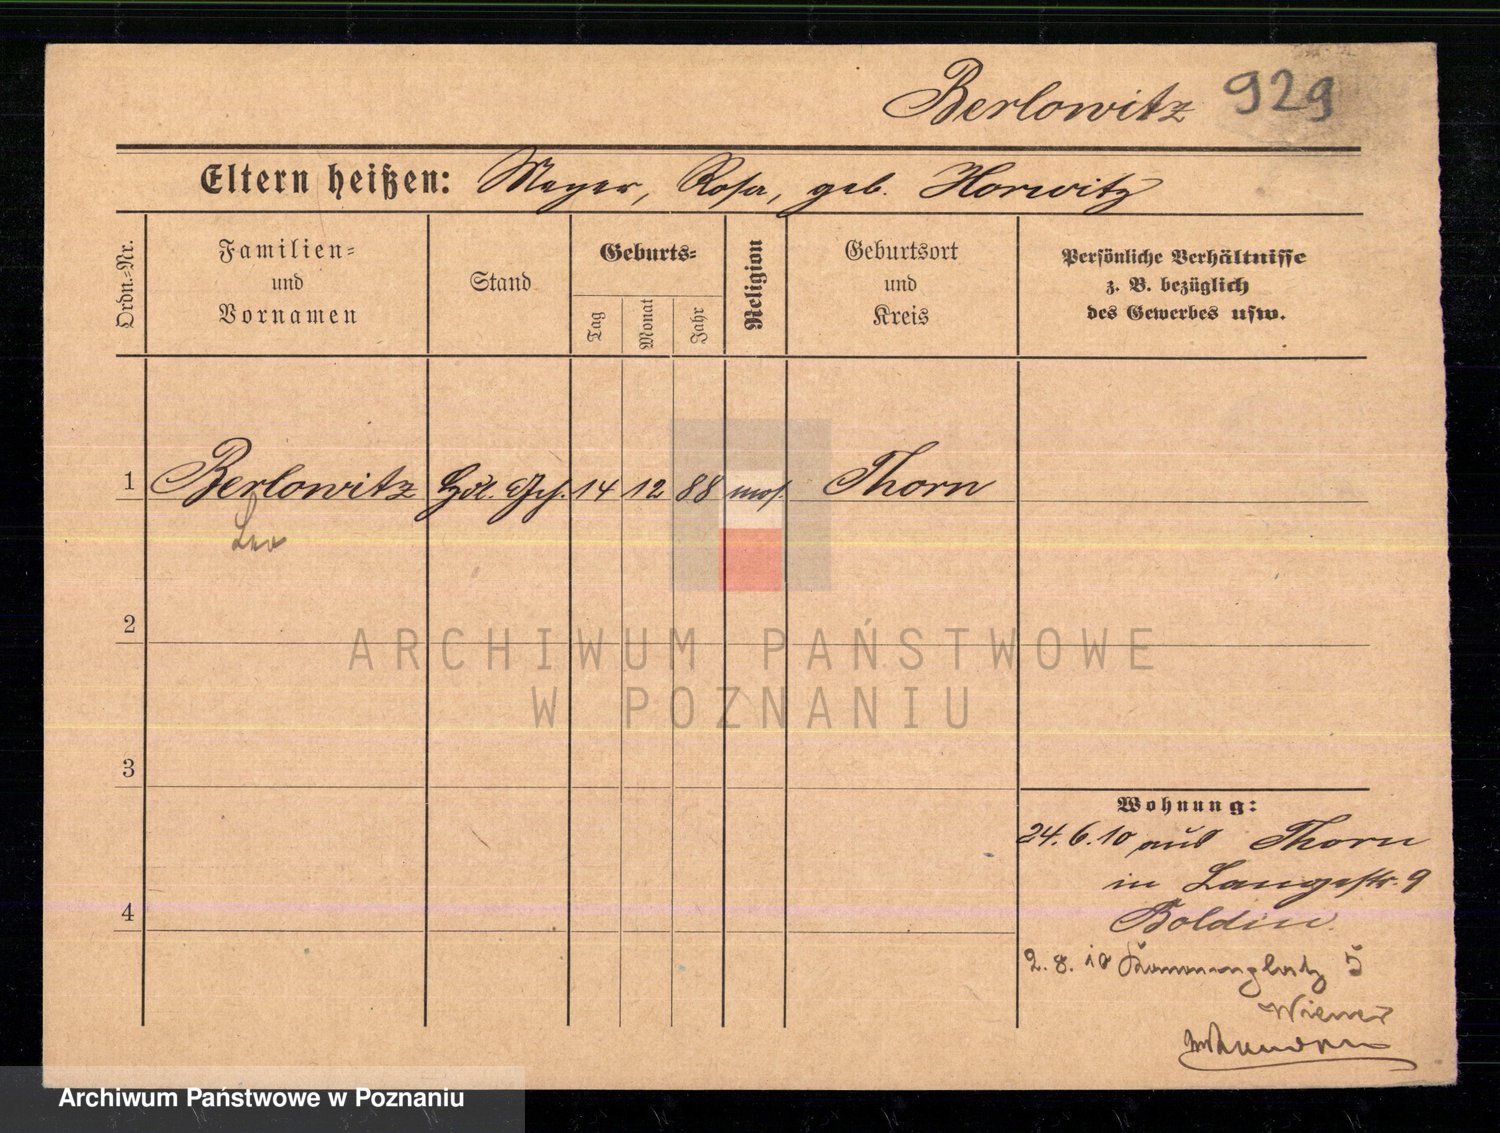 Berlowitz 929
Eltern heißen: Meyer, Rosa, geb. Horwitz
Ordn.-Nr.
Familien-
und
Vornamen
Stand
Geburts-
Tag
Monat
Jahr
Religion
Geburtsort
und
Kreis
Persönliche Verhältnisse
z. B. bezüglich
des Gewerbes usw.
1 Berlowitz Hdl. Gch. 14 12 88 mos. Thorn
Leo
2
ARCHIWUM PAŃSTWOWE
W POZNANIU
3
Wohnung:
24.6.10 aus Thorn
in Langestr. 9
4
Boldin.
2. 8. 10 5
Wiener
Archiwum Państwowe w Poznaniu